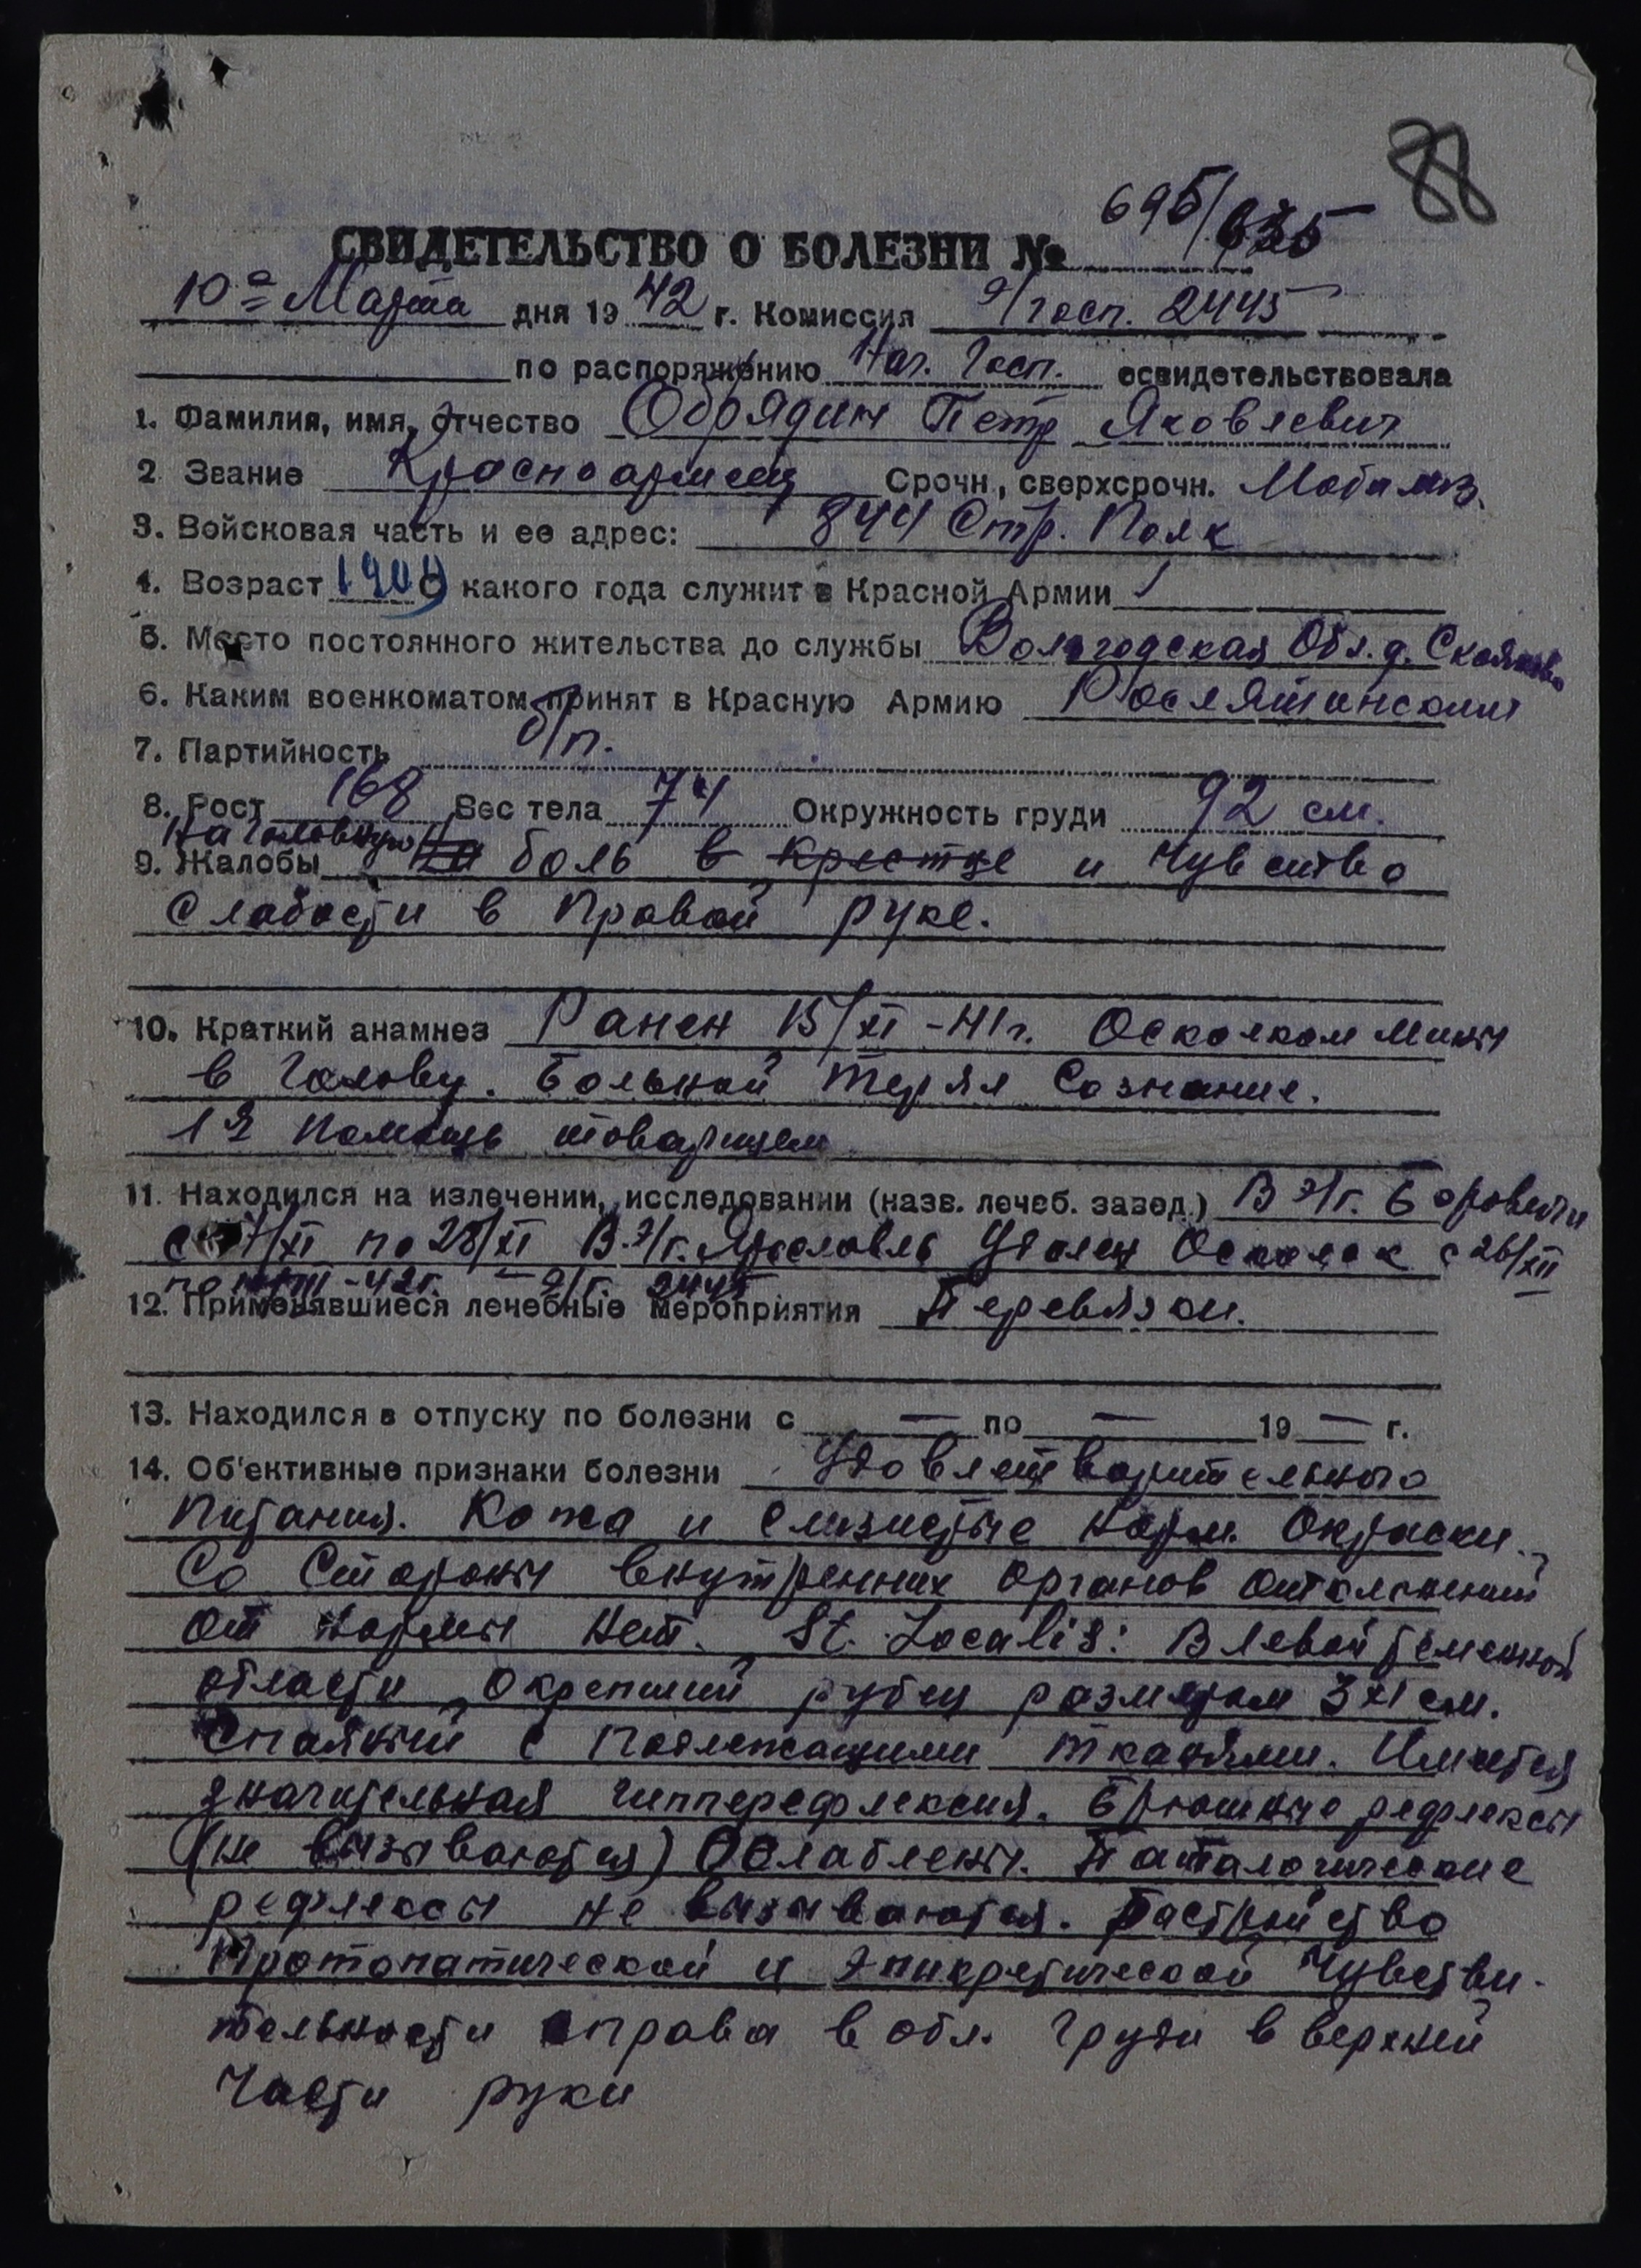 88
695/635
СВИДЕТЕЛЬСТВО О БОЛЕЗНИ №
10го Марта дня 19 42 г. Комиссия э/госп. 2445
по распоряжению Нач. Госп. освидетельствовала
1. Фамилия, имя, отчество Обрядин Петр Яковлевич
2 Звание Красноармеец Срочн., сверхсрочн. Мобилиз.
3. Войсковая часть и ее адрес: 844 Стр. Полк
4. Возраст 1904 С какого года служит в Красной Армии
5. Место постоянного жительства до службы Вологодская Обл. д.
6. Каким военкоматом принят в Красную Армию Рослятинским
7. Партийность б/п.
8. Рост 168 Вес тела 74 Окружность груди 92 см.
На головную
9. Жалобы На боль в крестце и чувство
слабости в правой руке.
10. Краткий анамнез Ранен 15/XI-41г. Осколком мины
в голову. Больной терял сознание.
1я помощь товарищем
11. Находился на излечении, исследовании (назв. лечеб. завед.) В э/г. Боровичи
с 17/XI по 28/XI В э/г. Ярославль Удален Осколок с 26/XII
по /III-42г. – э/г. 2445
12. Применявшиеся лечебные мероприятия Перевязки.
13. Находился в отпуску по болезни с — по — 19 — г.
14. Об'ективные признаки болезни Удовлетворительного
питания. Кожа и слизистые норм. Окраски.
Со Стороны внутренних органов отклонений
от нормы нет. St. Localis: В левой теменной
области окрепший рубец размером 3х1 см.
Спаянный с подлежащими тканями. Имеется
значительная гипперефлексия. Брюшные рефлексы
(не вызываются) Ослаблены. Паталогические
рефлексы не вызываются. Растройство
Протопатической и эпикретической Чувстви-
тельности справа в обл. груди в верхней
части руки